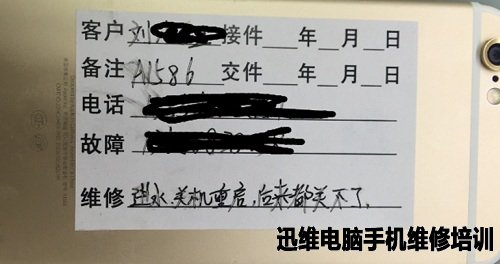 客户 刘 接件 年 月 日
备注 A1586 交件 年 月 日
电话
故障
维修 进水.关机重启,后来都关不了.
迅维电脑手机维修培训